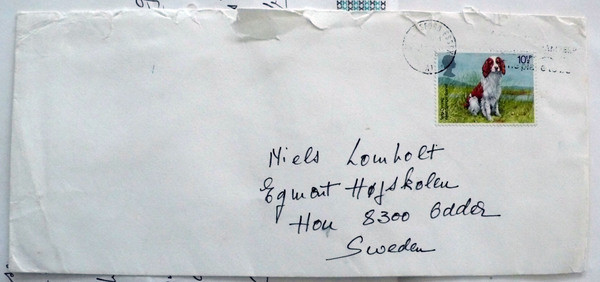 10½P
Niels Lomholt
Egmont Højskolen
Hou 8300 Odder
Sweden